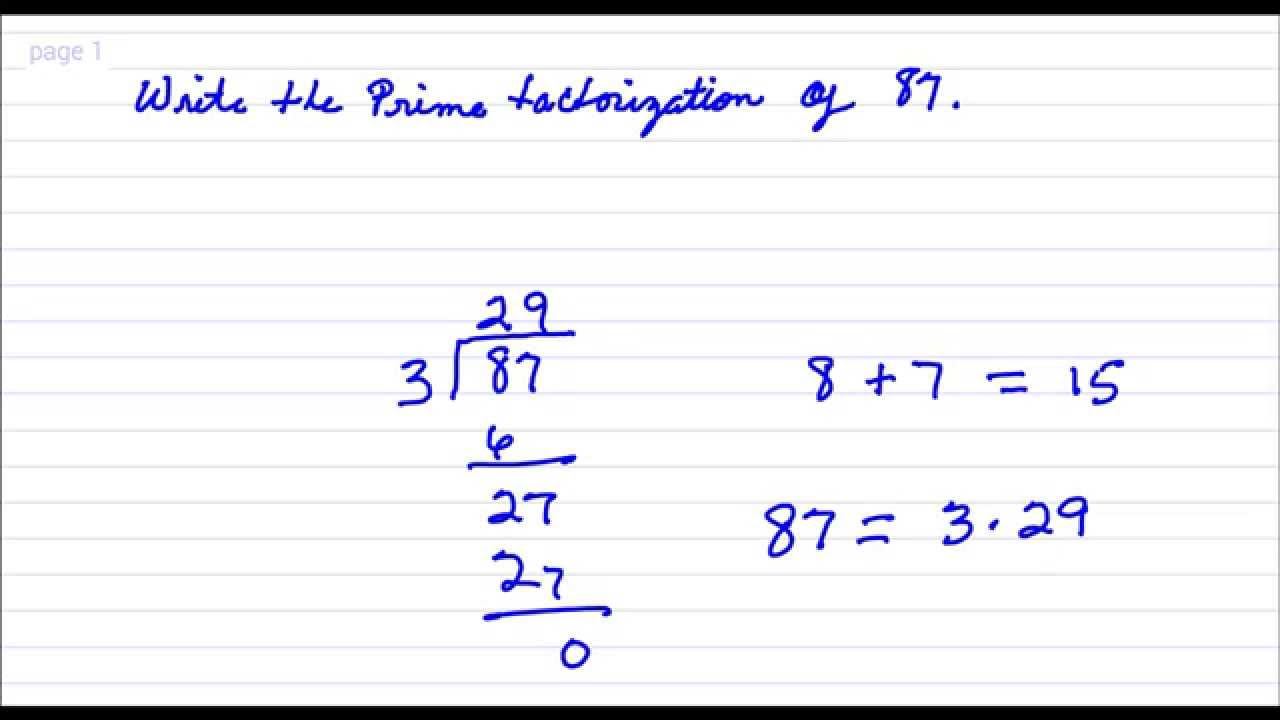 page 1
Write the Prime factorization of 87.
29
3 87
6
27
27
0
8 + 7 = 15
87 = 3 · 29